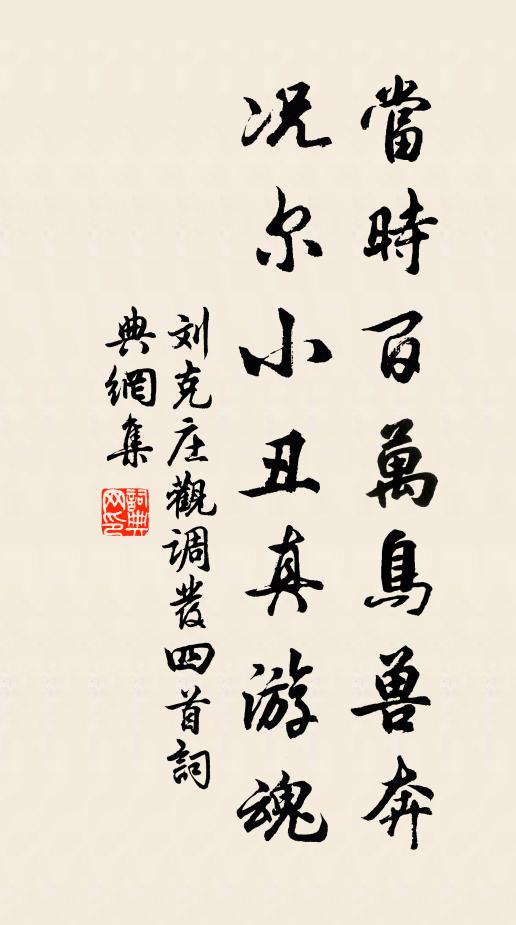 當時百萬鳥兽奔
况尔小丑真游魂
刘克庄觀调發四首詞
典網集
詞典網印